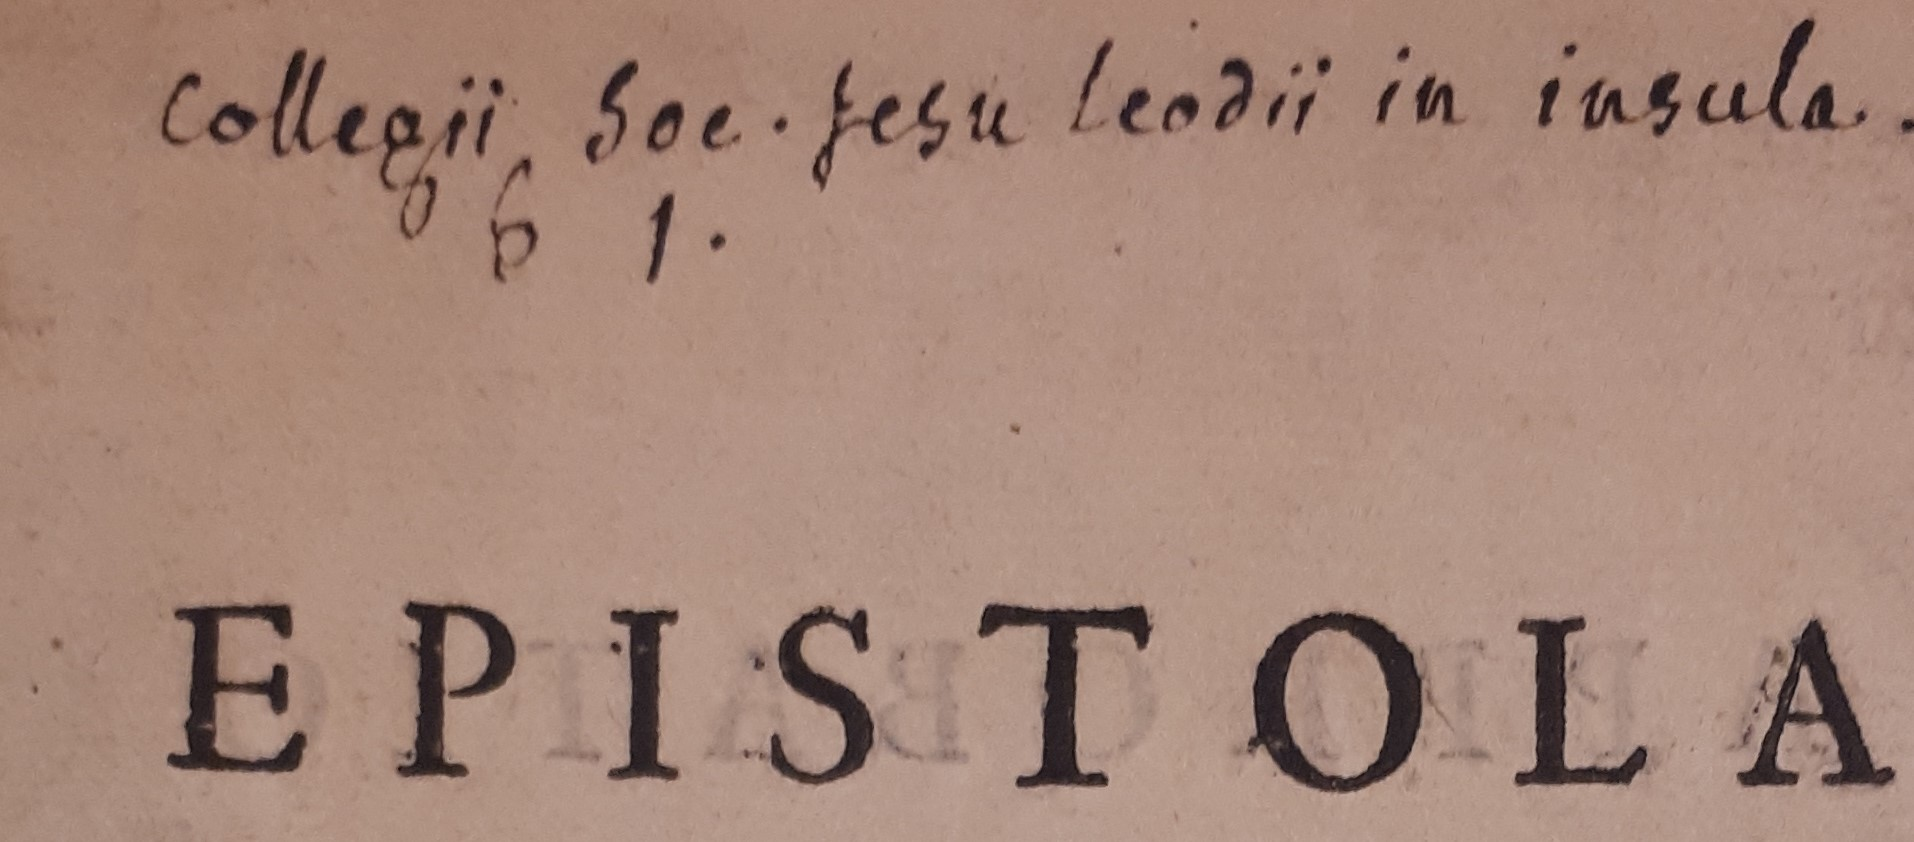 Collegii Soc. Jesu Leodii in insula.
6 1.
EPISTOLA